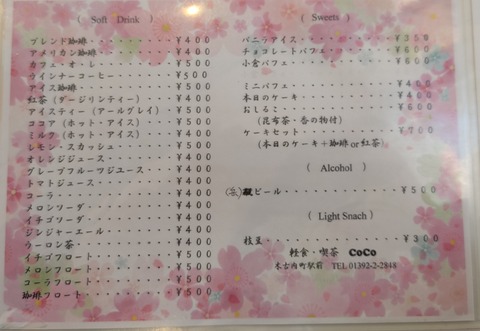 ( Soft Drink )
ブレンド珈琲・・・・・・・・¥400
アメリカン珈琲・・・・・・・¥400
カフェ・オ・レ・・・・・・・¥500
ウインナーコーヒー・・・・・¥500
アイス珈琲・・・・・・・・・¥500
紅茶(ダージリンティー)・・¥400
アイスティー(アールグレイ)・¥500
ココア(ホット・アイス)・・¥500
ミルク(ホット・アイス)・・¥400
レモン・スカッシュ・・・・・¥500
オレンジジュース・・・・・・¥400
グレープフルーツジュース・・¥400
トマトジュース・・・・・・・¥400
コーラ・・・・・・・・・・・¥400
メロンソーダ・・・・・・・・¥400
イチゴソーダ・・・・・・・・¥400
ジンジャーエール・・・・・・¥400
ウーロン茶・・・・・・・・・¥400
イチゴフロート・・・・・・・¥500
メロンフロート・・・・・・・¥500
コーラフロート・・・・・・・¥500
珈琲フロート・・・・・・・・¥500
( Sweets )
バニラアイス・・・・・・・・¥350
チョコレートパフェ・・・・・¥600
小倉パフェ・・・・・・・・・¥600
ミニパフェ・・・・・・・・・¥400
本日のケーキ・・・・・・・・¥400
おしるこ・・・・・・・・・・¥600
(昆布茶・香の物付)
ケーキセット・・・・・・・・¥700
(本日のケーキ+珈琲or紅茶)
( Alcohol )
ビール・・・・・・・・・・・¥500
( Light Snach )
枝豆・・・・・・・・・・・・¥300
軽食・喫茶 CoCo
木古内町駅前 TEL 01392-2-2848